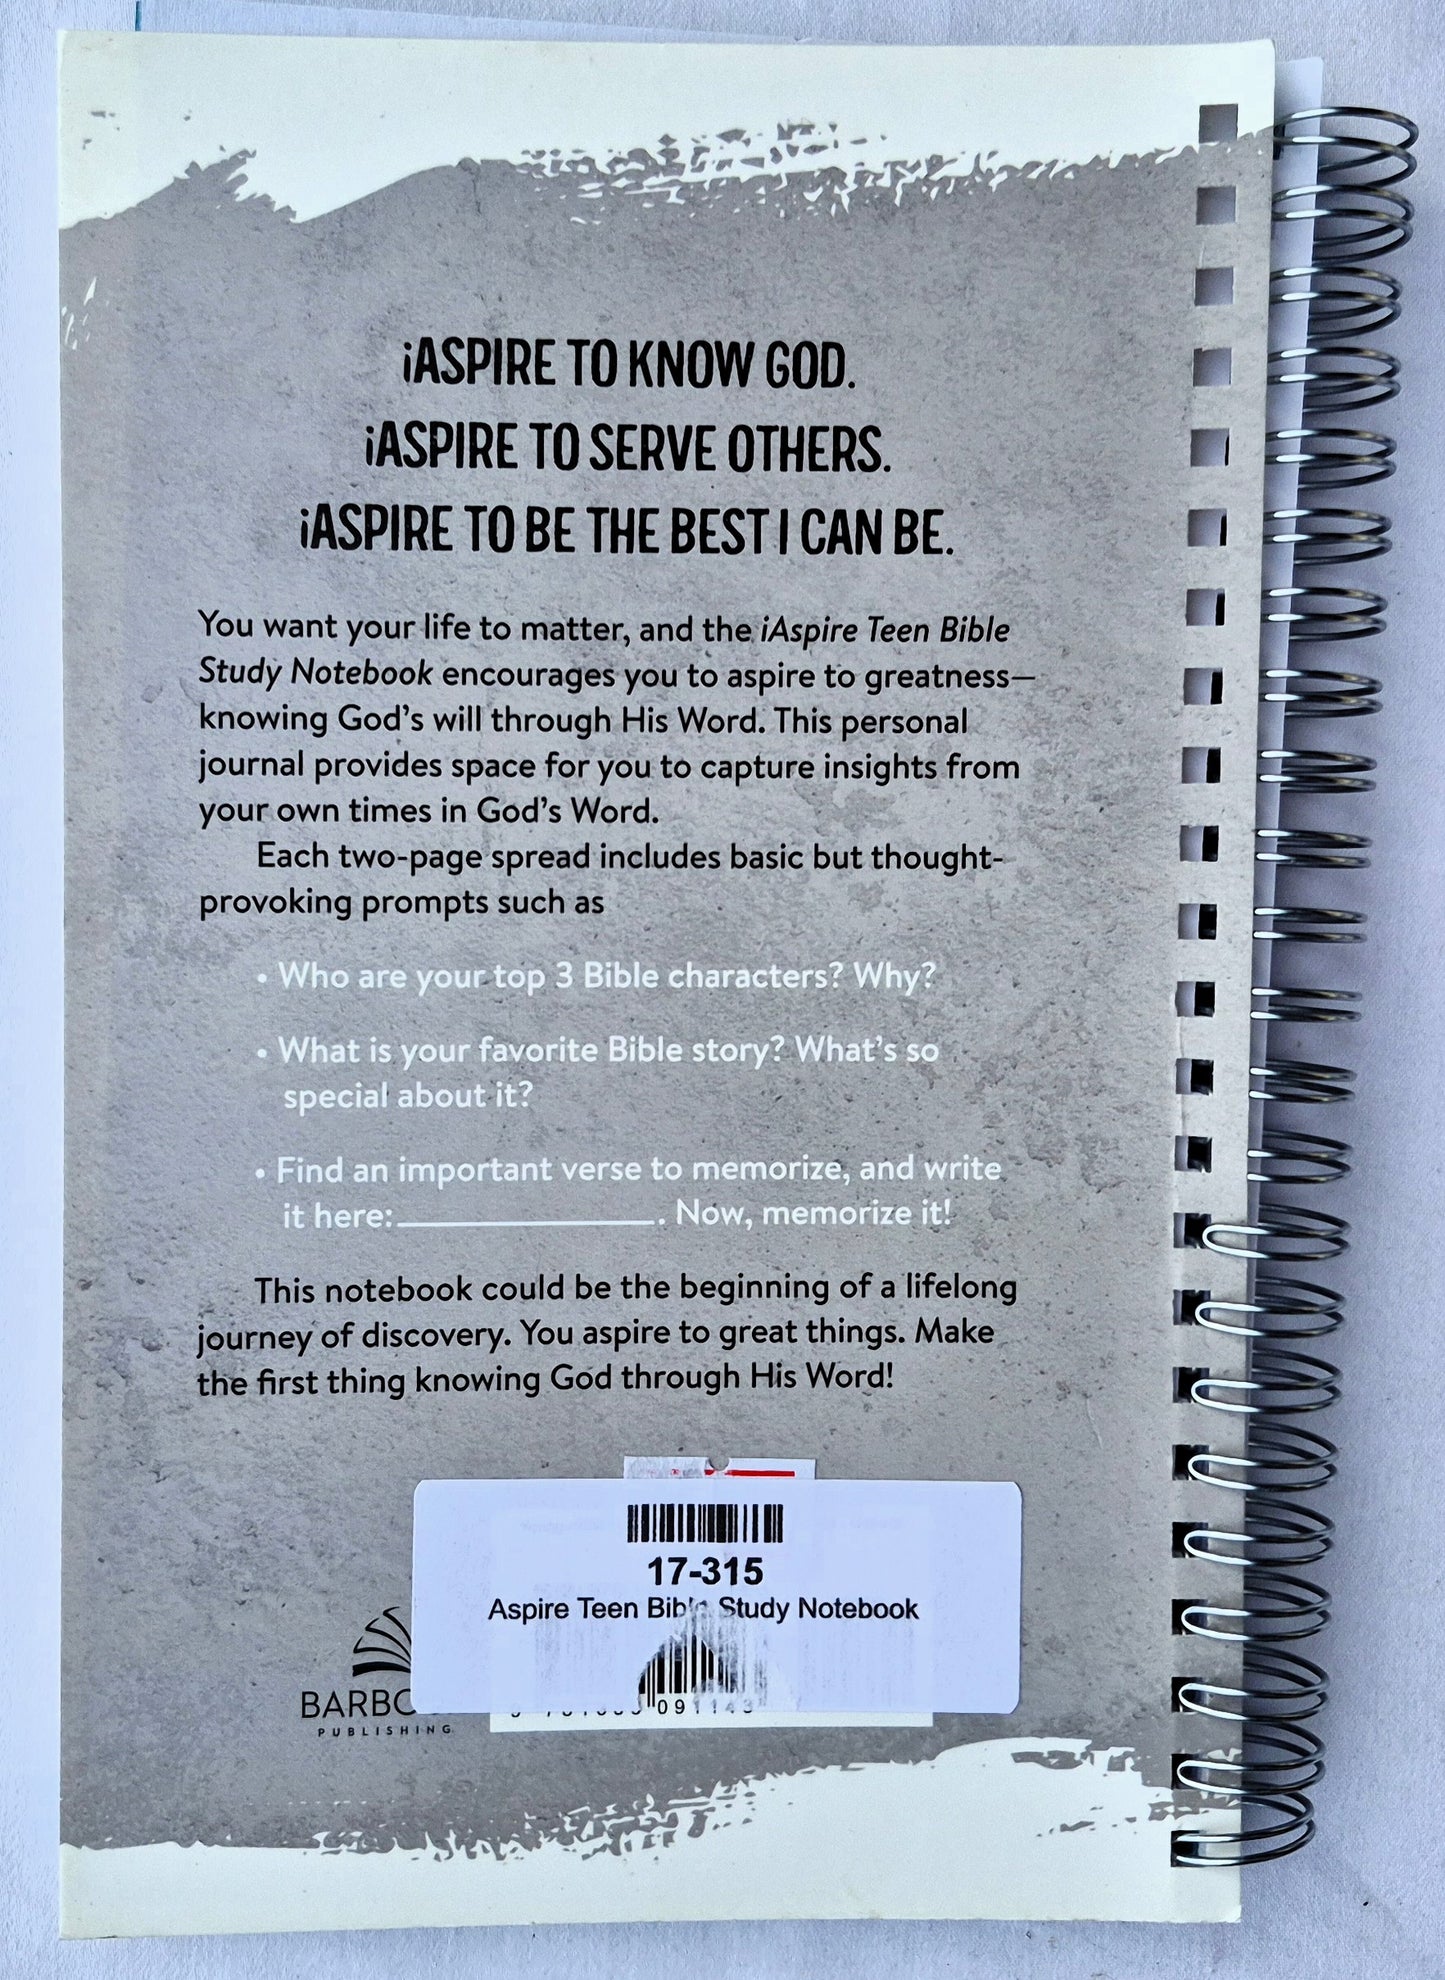 iASPIRE TO KNOW GOD.
iASPIRE TO SERVE OTHERS.
iASPIRE TO BE THE BEST I CAN BE.
You want your life to matter, and the iAspire Teen Bible
Study Notebook encourages you to aspire to greatness—
knowing God's will through His Word. This personal
journal provides space for you to capture insights from
your own times in God's Word.
Each two-page spread includes basic but thought-
provoking prompts such as
• Who are your top 3 Bible characters? Why?
• What is your favorite Bible story? What's so
special about it?
• Find an important verse to memorize, and write
it here:______________. Now, memorize it!
This notebook could be the beginning of a lifelong
journey of discovery. You aspire to great things. Make
the first thing knowing God through His Word!
17-315
Aspire Teen Bible Study Notebook
PUBLISHING